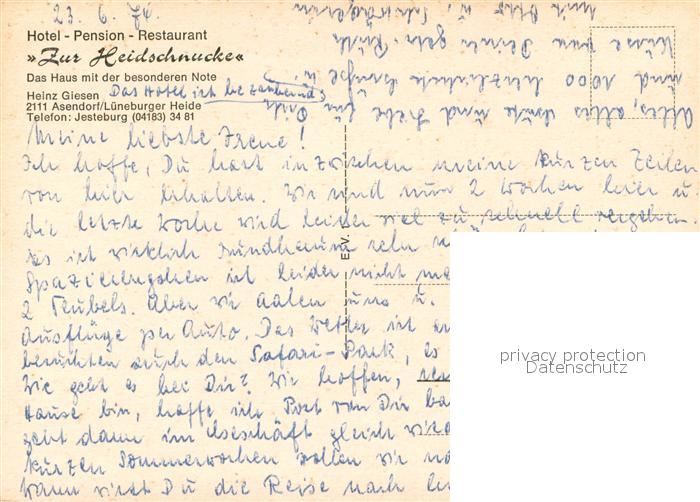 23. 6. 74.
Hotel - Pension - Restaurant
»Zur Heidschnucke«
Das Haus mit der besonderen Note
Heinz Giesen
2111 Asendorf/Lüneburger Heide
Telefon: Jesteburg (04183) 34 81
Das Hotel ist bezaubernd
Meine liebste Irene!
Ich hoffe, Du hast inzwischen meine kurzen Zeilen
von hier erhalten. Wir sind nun 2 Wochen hier u
die letzte Woche wird leider viel zu schnell vergehen.
es ist wirklich rundherum sehr
Spazierengehen ist leider nicht
2 Aber wir aalen uns u.
Ausflüge per Auto. Das Wetter ist
besuchten auch den Safari-Park, es
Wie geht es bei Dir? Wir hoffen,
Hause bin, hoffe ich Post von Dir
geht dann im Geschäft gleich
kurzen Sommerwochen wollen wir
Wann wirst Du die Reise nach
Alles, alles Gute und Liebe für Dich
und 1000 herzlichste Grüße u.
Küsse von Deiner
E.V.
privacy protection
Datenschutz